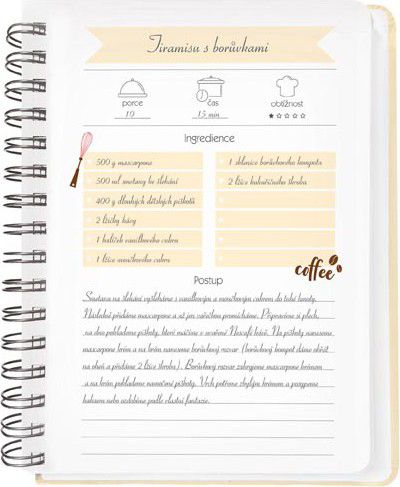 Tiramisu s borůvkami
porce
10
čas
15 min
obtížnost
Ingredience
500 g mascarpone
500 ml smetany ke šlehání
400 g dlouhých dětských piškotů
2 lžičky kávy
1 balíček vanilkového cukru
1 lžíce moučkového cukru
1 sklenice borůvkového kompotu
2 lžíce kukuřičného škrobu
coffee
Postup
Smetanu na šlehání vyšleháme s vanilkovým a moučkovým cukrem do tuhé hmoty.
Následně přidáme mascarpone a už jen vařečkou promícháme. Připravíme si plech,
na dno pokládáme piškoty, které máčíme v uvařené Nescafé kávě. Na piškoty naneseme
mascarpone krém a na krém naneseme borůvkový rozvar (borůvkový kompot dáme ohřát
na oheň a přidáme 2 lžíce škrobu). Borůvkový rozvar zakryjeme mascarpone krémem
a na krém pokládáme namočené piškoty. Vrch potřeme zbylým krémem a posypeme
kakaem nebo ozdobíme podle vlastní fantazie.